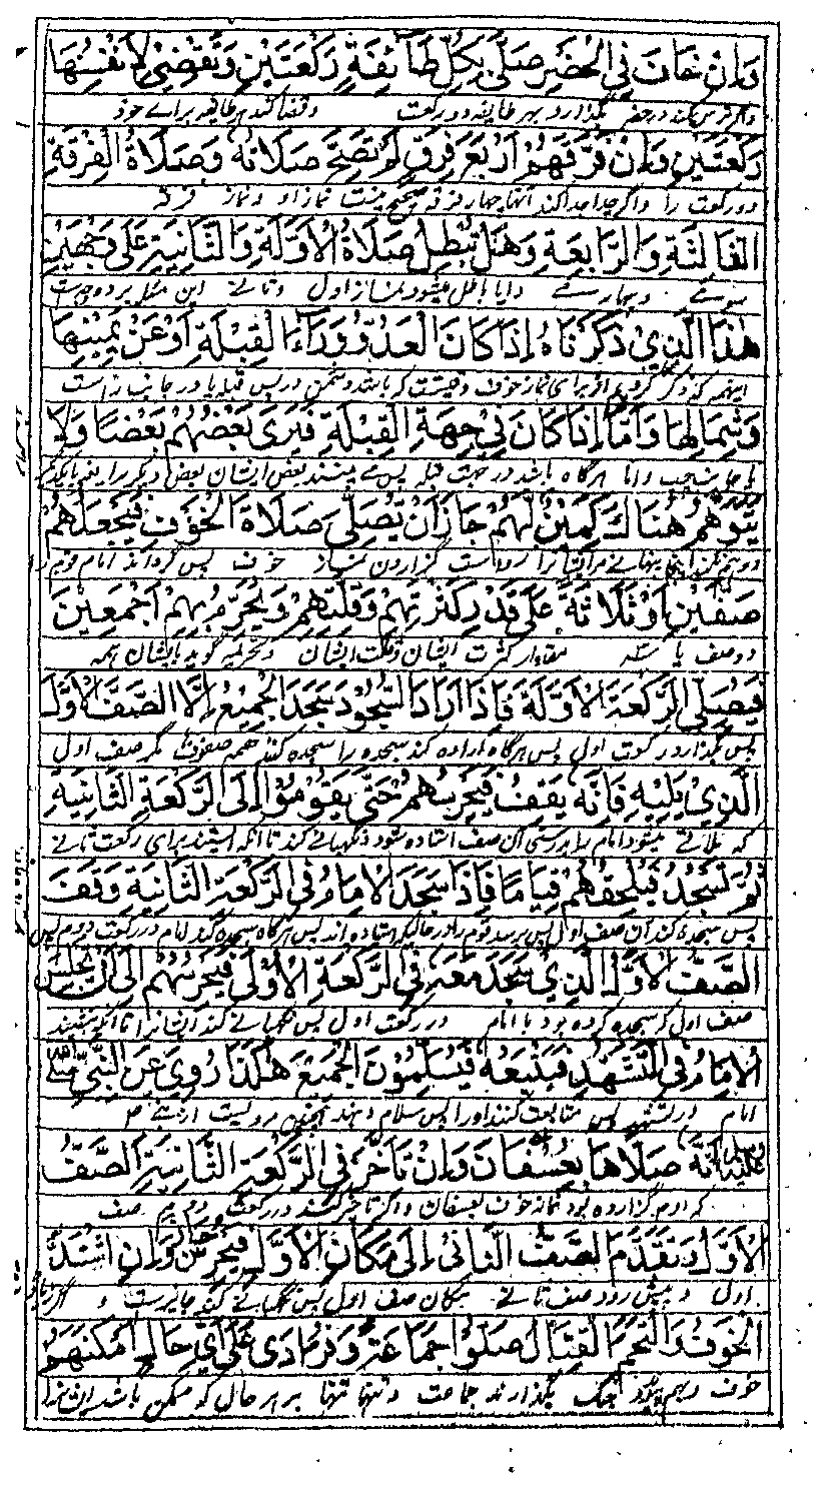 وَاِنْ خَافَ فِي الْحَضَرِ صَلّٰى بِكُلِّ طَائِفَةٍ رَكْعَتَيْنِ وَتَقْضِيْ لِاَنْفُسِهَا
واگر ترس کند در حضر بگذارد بهر طایفه دو رکعت وقضا کند هر طایفه برای خود
رَكْعَتَيْنِ وَاِنْ فَرَّقَهُمْ اَرْبَعَ فِرَقٍ لَمْ تَصِحَّ صَلَاتُهُ وَصَلَاةُ الْفِرْقَةِ
دو رکعت را واگر جدا جدا کند آنها چهار فرقه صحیح نیست نماز او ونماز فرقه
الثَّالِثَةِ وَالرَّابِعَةِ وَهَلْ تَبْطُلُ صَلَاةُ الْاَوَّلَةِ وَالثَّانِيَةِ عَلٰى وَجْهَيْنِ
وچهارمی وآیا باطل میشود نماز اول وثانی این مسئله بر دو وجه است
هٰذَا الَّذِيْ ذَكَرْنَاهُ اِذَا كَانَ الْعَدُوُّ وَرَاءَ الْقِبْلَةِ اَوْ عَنْ يَمِيْنِهَا
باشد دشمن در پس قبله یا در جانب راست
وَشِمَالِهَا وَاَمَّا اِذَا كَانَ فِيْ جِهَةِ الْقِبْلَةِ فَيَرٰى بَعْضُهُمْ بَعْضًا وَلَا
یا جانب چپ واما هرگاه باشد در جهت قبله پس می بینند بعض ایشان بعض دیگر را
يَتَوَهَّمُ هُنَاكَ كَمِيْنٌ لَهُمْ جَازَ اَنْ يُصَلِّيَ صَلَاةَ الْخَوْفِ فَيَجْعَلَهُمْ
رواست گزاردن نماز خوف پس گرداند امام قوم را
صَفَّيْنِ اَوْ ثَلَاثَةً عَلٰى قَدْرِ كَثْرَتِهِمْ وَقِلَّتِهِمْ وَيُحَرِّمُ بِهِمْ اَجْمَعِيْنَ
دو صف یا سه مقدار کثرت ایشان وقلت ایشان وتحریمه گوید بایشان همه
فَيُصَلِّي الرَّكْعَةَ الْاَوَّلَةَ فَاِذَا اَرَادَ السُّجُوْدَ سَجَدَ الْجَمِيْعُ اِلَّا الصَّفَّ الْاَوَّلَ
پس بگذارد رکعت اول پس هرگاه اراده کند سجده را سجده کند همه صفوف مگر صف اول
الَّذِيْ يَلِيْهِ فَاِنَّهُ يَقِفُ فَيَحْرُسُهُمْ حَتّٰى يَقُوْمُوْا اِلَى الرَّكْعَةِ الثَّانِيَةِ
آن صف استاده شود ونگهبانی کند تا آنکه ایستند برای رکعت ثانی
ثُمَّ تَسْجُدُ فَيَلْحَقُهُمْ قِيَامًا فَاِذَا سَجَدَ الْاِمَامُ فِي الرَّكْعَةِ الثَّانِيَةِ وَقَفَ
پس سجده کند آن صف اول پس برسد قوم را در حالیکه استاده اند پس هرگاه سجده کند امام در رکعت دوم پس
الصَّفُّ الْاَوَّلُ الَّذِيْ سَجَدَ مَعَهُ فِي الرَّكْعَةِ الْاُوْلٰى فَيَحْرُسُهُمْ اِلٰى اَنْ يَجْلِسَ
صف اول که سجده کرده بود با امام در رکعت اول پس نگهبانی کند ایشانرا تا آنکه بنشیند
الْاِمَامُ فِي التَّشَهُّدِ فَيَتْبَعُهُ فَيُسَلِّمُوْنَ الْجَمِيْعَ هٰكَذَا رُوِيَ عَنِ النَّبِيِّ صَلَّى اللّٰهُ
امام در تشهد پس متابعت کنند اورا پس سلام دهند همچنین مرویست از نبی ص
عَلَيْهِ وَسَلَّمَ اَنَّهُ صَلَّاهَا بِعُسْفَانَ وَاِنْ تَأَخَّرَ فِي الرَّكْعَةِ الثَّانِيَةِ الصَّفُّ
که او گزارده بود نماز خوف بعسفان واگر تاخر کنند در رکعت دویم صف
الْاَوَّلُ وَتَقَدَّمَ الصَّفُّ الثَّانِيْ اِلٰى مَكَانِ الْاَوَّلِ فَيَحْرُسُ جَازَ وَاِنِ اشْتَدَّ
اول و پیش رود صف ثانی بمکان صف اول پس نگهبانی کند جائزست و اگر
الْخَوْفُ وَالْتَحَمَ الْقِتَالُ صَلَّوْا جَمَاعَةً وَفُرَادٰى عَلٰى اَيِّ حَالٍ اَمْكَنَهُمْ
خوف وبهم پیوندد جنگ بگذارند جماعت وتنها تنها بر هر حال که ممکن باشد ایشانرا